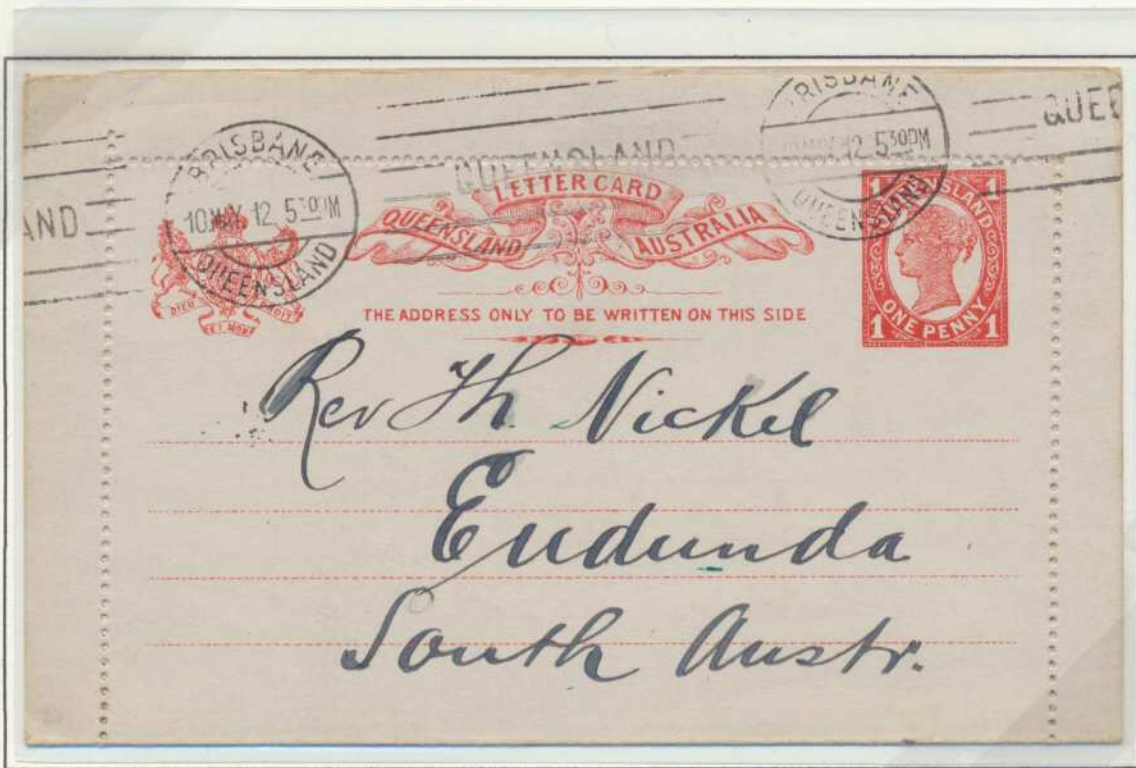 BRISBANE
10 MY 12 5 30 PM
QUEENSLAND
QUEENSLAND
BRISBANE
MY 12 5 30 PM
QUEENSLAND
QUEE
AND
LETTER CARD
QUEENSLAND AUSTRALIA
DIEU ET MON DROIT
THE ADDRESS ONLY TO BE WRITTEN ON THIS SIDE
1 QUEENSLAND 1
1 ONE PENNY 1
Rev Th. Nickel
Eudunda
South Austr.